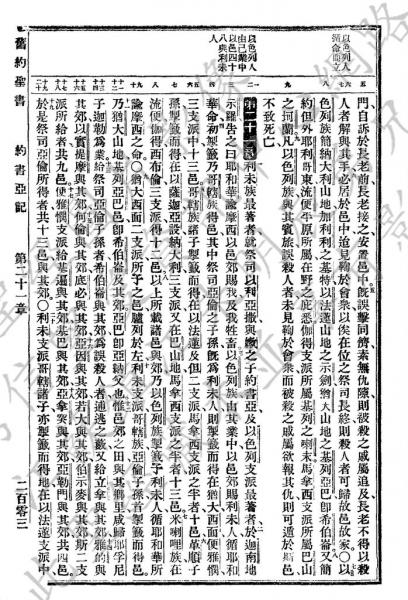 以色列人
遵命而立
以色列人
由己業中
以邑四十
八與利未
人
門自訴於長老前長老接之安置邑中既誤擊同儕素無仇隙則被殺之戚屬追及長老不得以殺
人者解與其手必居於邑中迨見鞫於會衆以俟在位之祭司長終則殺人者可歸故邑故家〇以
色列族簡納大利山地加利利之基特以法蓮山地之示劍猶大山地之基列亞巴卽希伯崙又簡
約但外耶利哥東流便平原所屬在野之庇悉伽得支派所屬基列之喇末馬拿西支派所屬巴山
之坷蘭凡以色列族與其賓旅誤殺人者未見鞫於會衆而被殺之戚屬欲報其仇則可遁於斯邑
不致死亡
第二十一章 利未族最著者就祭司以利亞撒與嫩之子約書亞及以色列支派最著者於迦南地
示羅告之曰耶和華諭摩西以邑郊賜我及我牲畜以色列族由其業中以邑郊賜利未人循耶和
華命初掣籤乃哥轄族得邑其中祭司亞倫子孫既爲利未人則掣籤而得在猶大西面便雅憫
三支派中十三邑哥轄族諸家掣籤而得在以法蓮及但二支派馬拿西支派之半者十邑革順子
孫掣籤而得在以薩迦亞設納大利三支派又在巴山地馬拿西支派之半者十三邑米喇哩族在
流便伽得西布倫三支派得十二邑以上所載諸邑與郊乃以色列族掣籤予利未人循耶和華所
諭摩西之命〇猶大西面二支派所予之邑臚列於左利未支派哥轄族亞倫子孫首掣籤而得
乃猶大山地基列亞巴邑卽希伯崙及其郊亞巴卽亞納父也惟邑郊之田與其鄉里咸歸耶孚尼
子迦勒爲業給祭司亞倫子孫者希伯崙與其郊爲誤殺人者逋逃之藪又給立拿與其郊雅的與
其郊以實提摩與其郊何倫與其郊底必與其郊亞因與其郊若大與其郊伯示麥與其郊二支
派所給者共九邑便雅憫支派所給基遍與其郊基巴與其郊亞拿突與其郊亞勒門與其郊共四邑
於是祭司亞倫所得者共十三邑與其郊〇利未支派哥轄諸子亦掣籤而得地在以法蓮支派中
舊約聖書 約書亞記 第二十一章 二百零三